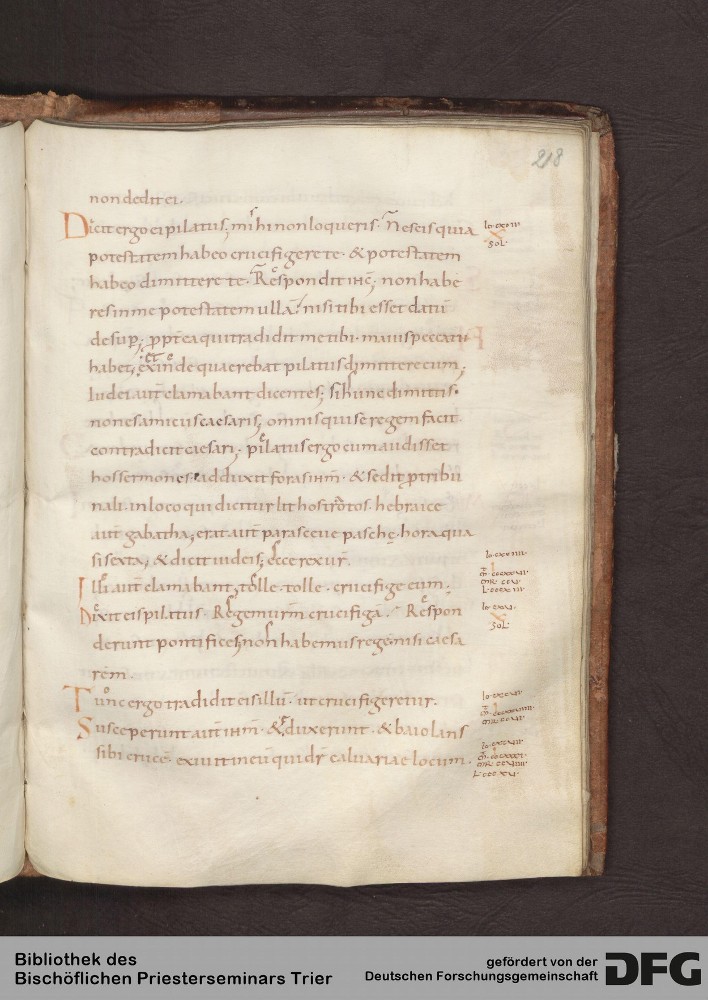 218
non dedit ei.
Dicit ergo ei pilatus; mihi non loqueris. Nescis quia
potestatem habeo crucifigere te. & potestatem
habeo dimittere te. Respondit ihc; non habe
res in me potestatem ulla. nisi tibi esset datū
desup; ppt ea qui tradidit me tibi. maius peccatū
habet; exinde quaerebat pilatus dimittere eum;
Iudei aut clamabant dicentes; si hunc dimittis.
non es amicus caesaris; omnis qui se regem facit
contradicit caesari. pilatus ergo cum audisset
hos sermones. adduxit foras ihm. & sedit p tribu
nali. in loco qui dicitur lithostrotos. hebraice
aut gabatha; erat aut parasceue paschę. hora qua
si sexta; & dicit iudeis; ecce rex ur.
Illi aut clamabant; tolle. tolle. crucifige eum.
Dixit eis pilatus. Regem urm crucifigā. Respon
derunt pontifices; non habemus regem nisi caesa
rem.
Tunc ergo tradidit eis illū. ut crucifigeretur.
Susceperunt aut ihm. & eduxerunt. & baiolans
sibi crucē. exiuit in eū qui dr calvariae locum.
Bibliothek des
Bischöflichen Priesterseminars Trier
gefördert von der
Deutschen Forschungsgemeinschaft
DFG